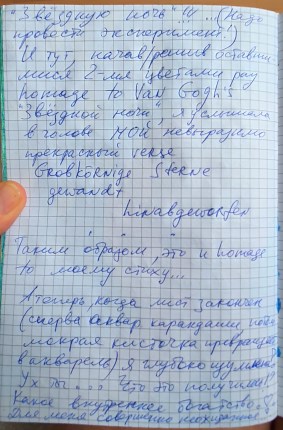 "Звёздную ночь" !!! ... (Надо
провести эксперимент!)
И тут, начав/решив оставши
мися 2-мя цветами рау
homage to Van Gogh's
"Звёздной ночи", я услышала
в голове МОЙ невыразимо
прекрасный verse
Grobkörnige Sterne
gewandt
hinabgeworfen
Таким образом, это и homage
to моему стиху...
А теперь, когда лист закончен
(сперва аквар карандаши, потом
мокрая кисточка превращ
в акварель) я глубоко изумлена
Ух ты... Что это получилось?
Какое внутреннее богатство
Для меня совершенно